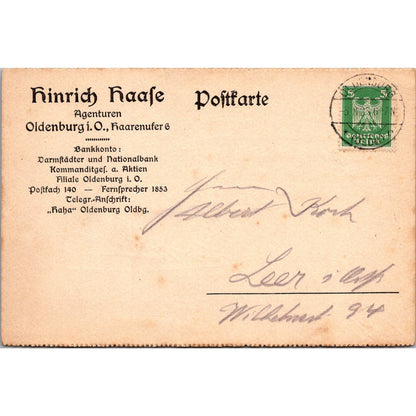 Hinrich Haase
Agenturen
Oldenburg i. O., Haarenufer 6
Bankkonto:
Darmstädter und Nationalbank
Kommanditges. a. Aktien
Filiale Oldenburg i. O.
Postfach 140 — Fernsprecher 1853
Telegr.-Anschrift:
„Haha" Oldenburg Oldbg.
Postkarte
5 5
Deutsches
Reich
Albert Koch
Leer i. Ostf
94